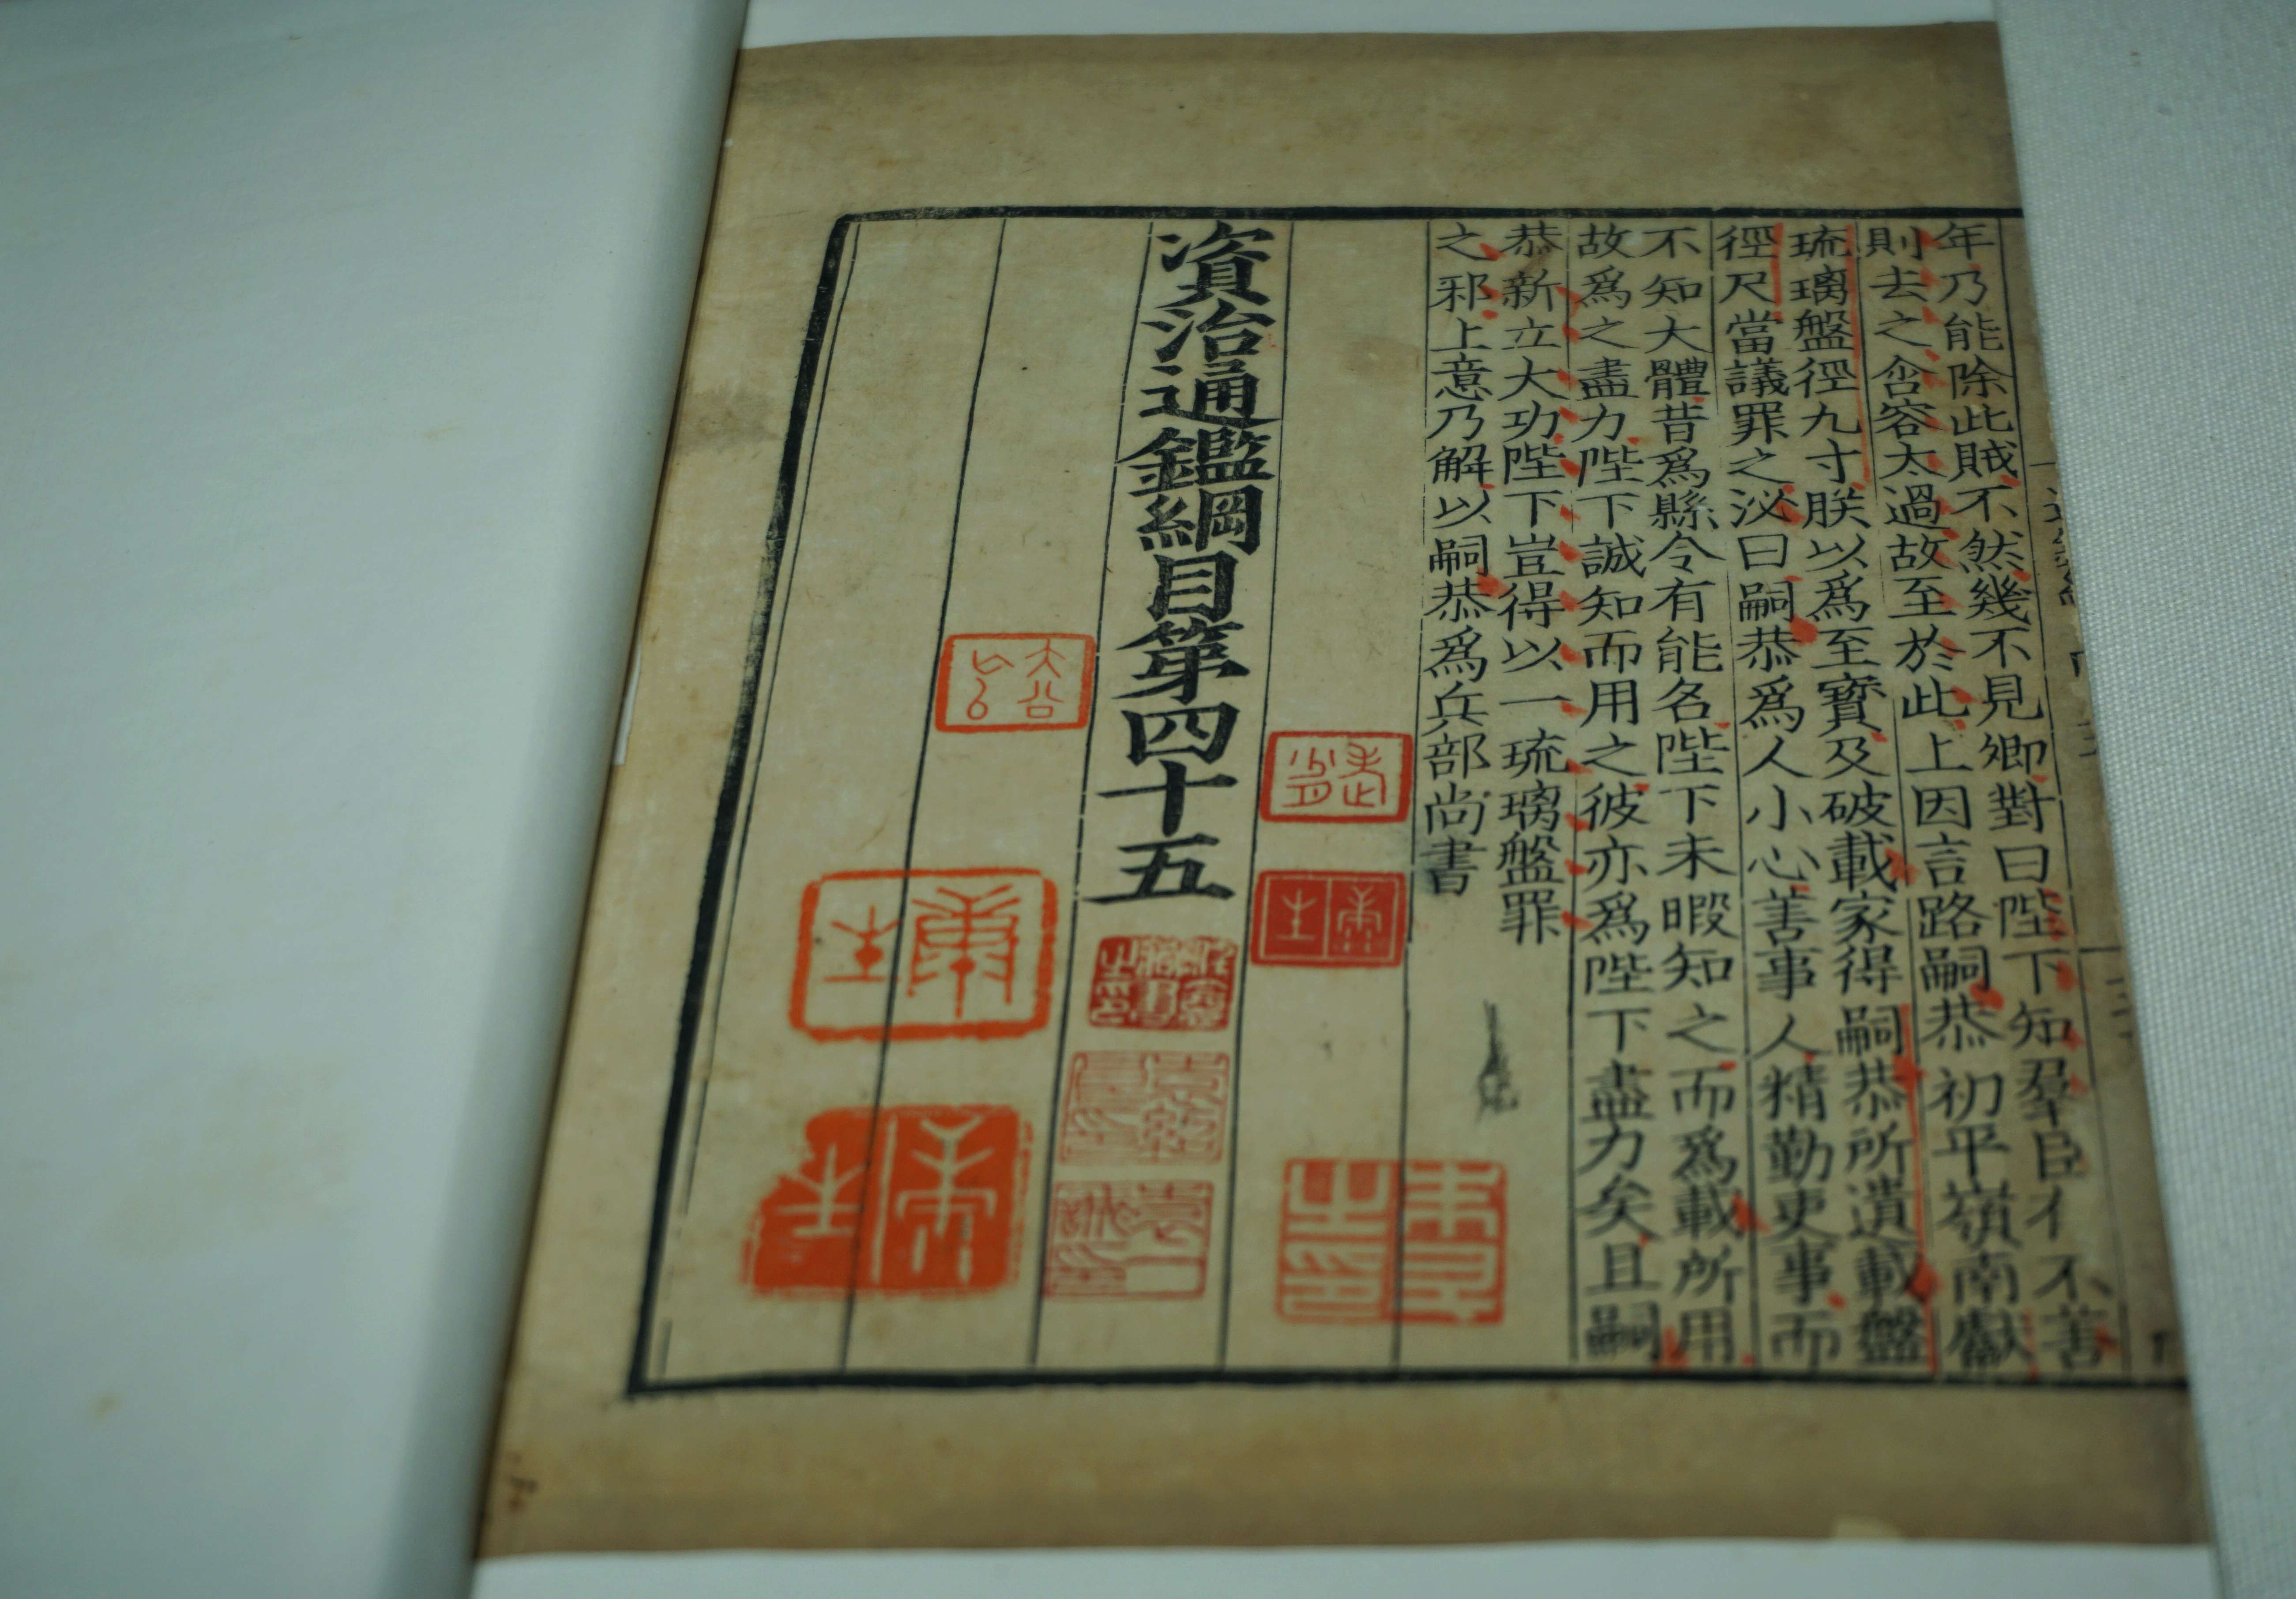 年乃能除此賊不然幾不見卿對曰陛下知羣臣有不善
則去之含容太過故至於此上因言路嗣恭初平嶺南獻
琉璃盤徑九寸朕以爲至寳及破載家得嗣恭所遺載盤
徑尺當議罪之泌曰嗣恭爲人小心善事人精勤吏事而
不知大體昔爲縣令有能名陛下未暇知之而爲載所用
故爲之盡力陛下誠知而用之彼亦爲陛下盡力矣且嗣
恭新立大功陛下豈得以一琉璃盤罪
之邪上意乃解以嗣恭爲兵部尚書
資治通鑑綱目第四十五